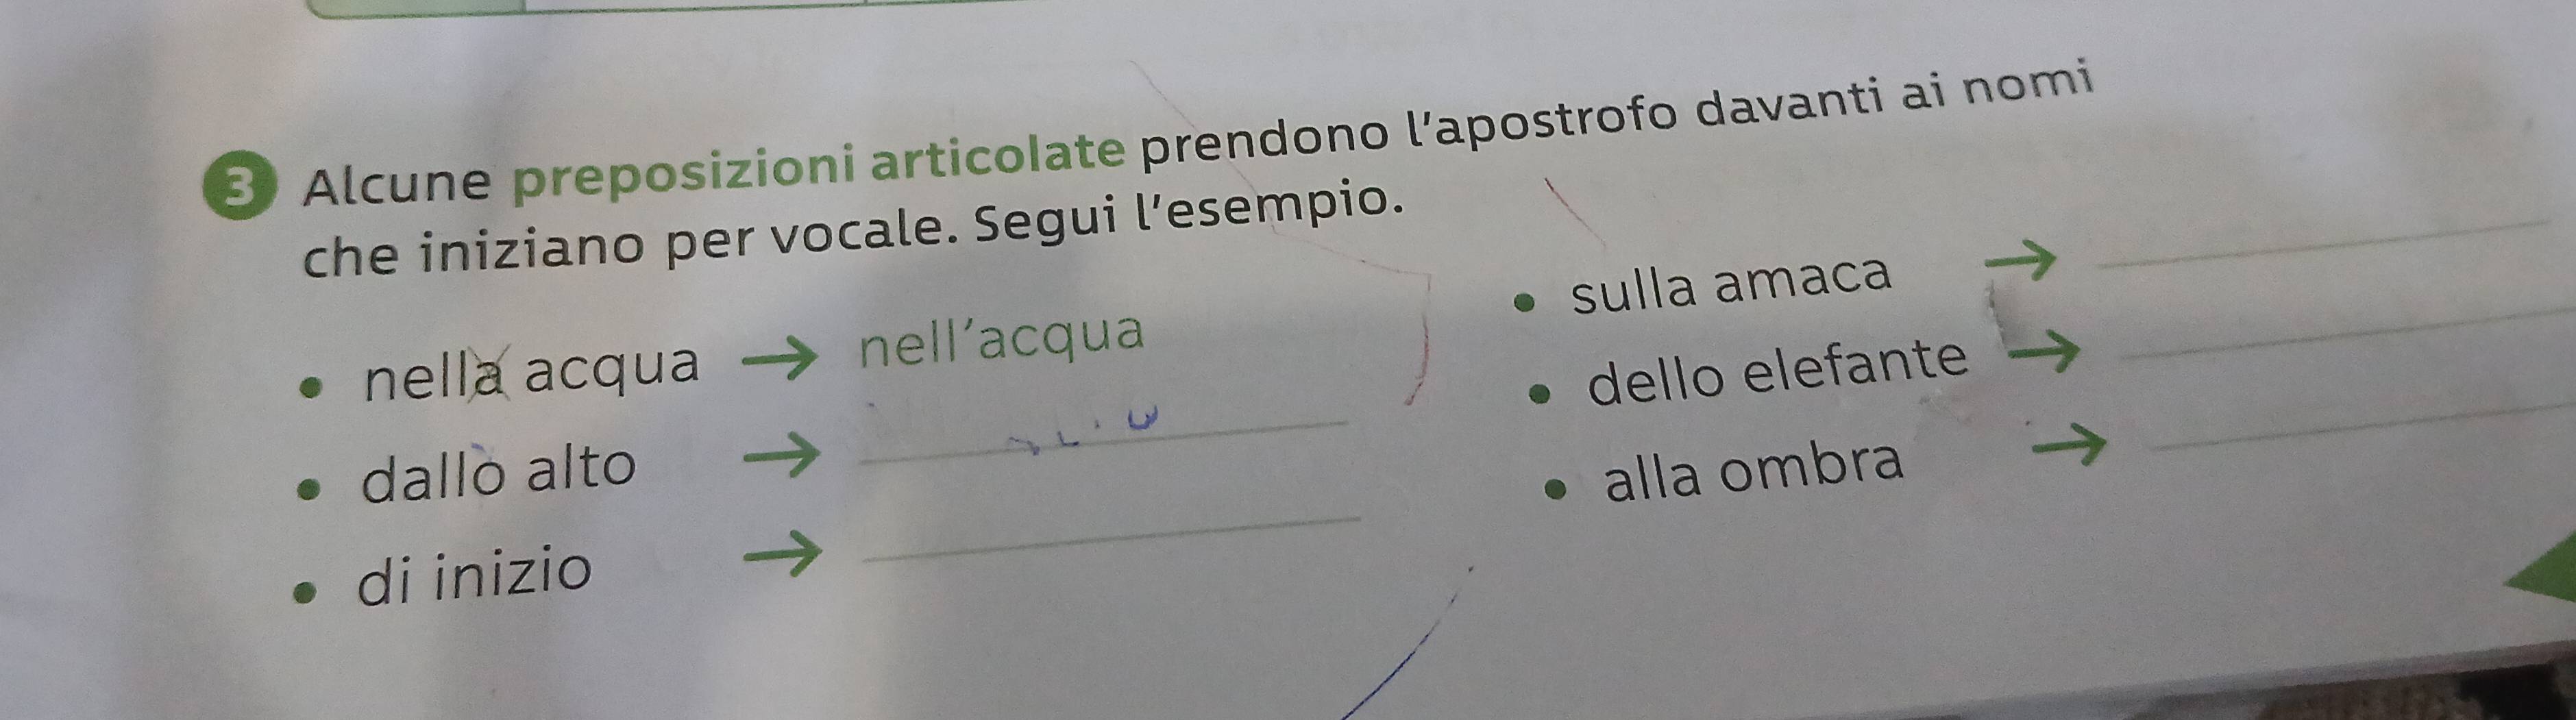 3 Alcune preposizioni articolate prendono l'apostrofo davanti ai nomi
che iniziano per vocale. Segui l'esempio.
• nella acqua → nell'acqua
• dallo alto →
• di inizio →
• sulla amaca →
• dello elefante →
• alla ombra →